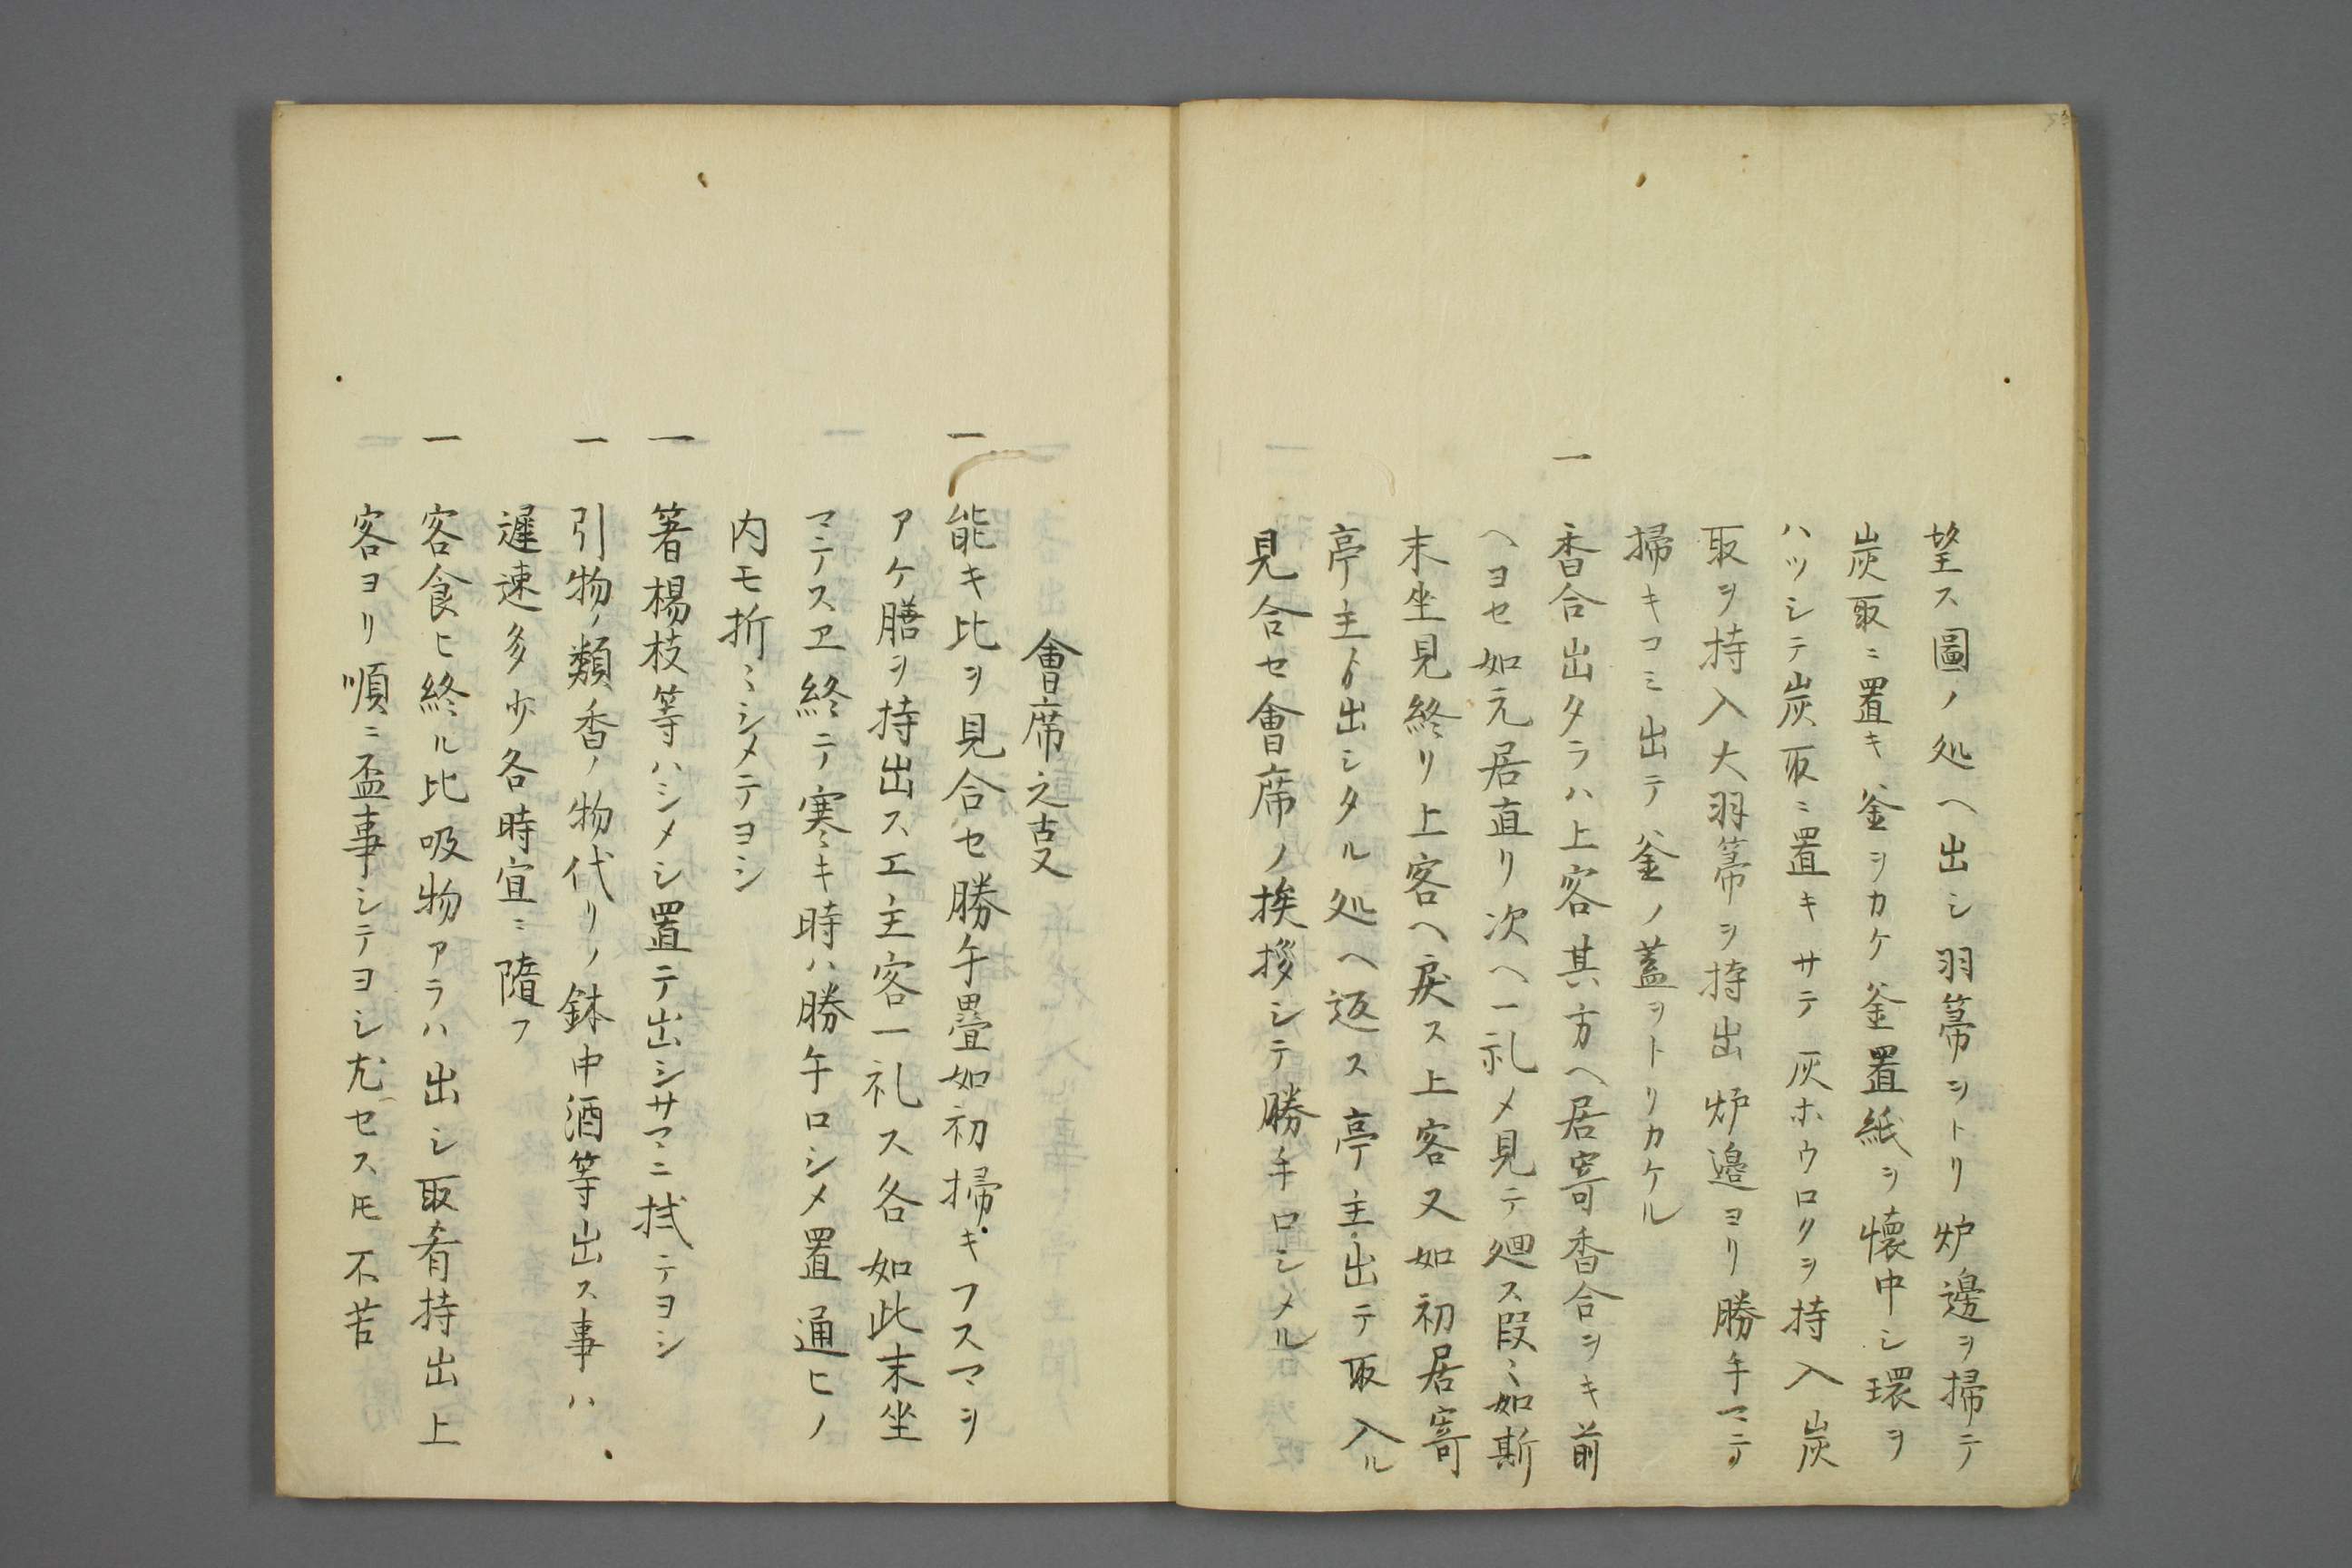 望ス圖ノ処ヘ出シ羽箒ヲトリ炉邊ヲ掃テ
炭取ニ置キ釜ヲカケ釜置紙ヲ懐中シ環ヲ
ハツシテ炭取ニ置キサテ灰ホウロクヲ持入炭
取ヲ持入大羽箒ヲ持出炉邉ヨリ勝手マテ
掃キコミ出テ釜ノ蓋ヲトリカケル
一 香合出タラハ上客其方ヘ居寄香合ヲキ前
ヘヨセ如元居直リ次ヘ一礼〆見テ廻ス段〻如斯
末坐見終リ上客ヘ戻ス上客又如初居寄
亭主ゟ出シタル処ヘ返ス亭主出テ取入ル
見合セ會席ノ挨拶シテ勝手口シメル
會席之㕝
一 能キ比ヲ見合セ勝手疊如初掃キフスマヲ
アケ膳ヲ持出スエ主客一礼ス各如此末坐
マテスヱ終テ寒キ時ハ勝手口シメ置通ヒノ
内モ折〻シメテヨシ
一 箸楊枝等ハシメシ置テ出シサマニ拭テヨシ
一 引物ノ類香ノ物代リノ鉢中酒等出ス事ハ
遅速多少各時宜ニ隨フ
一 客食ヒ終ル比吸物アラハ出シ取肴持出上
客ヨリ順ニ盃事シテヨシ尤セスモ不苦